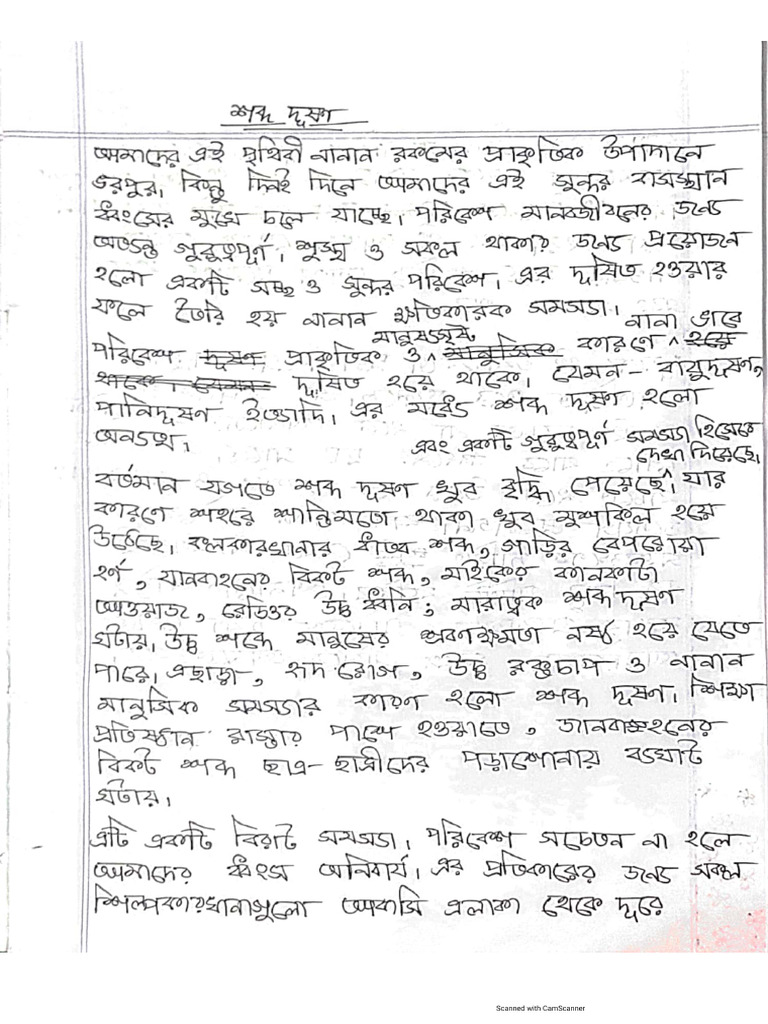 শব্দ দূষণ
আমাদের এই পৃথিবী নানান রকমের প্রাকৃতিক উপাদানে
ভরপুর, কিন্তু দিনই দিনে আমাদের এই সুন্দর বাসস্থান
ধ্বংসের মুখে চলে যাচ্ছে। পরিবেশ মানবজীবনের জন্যে
অত্যন্ত গুরুত্বপূর্ণ। সুস্থ ও সকল থাকার জন্যে প্রয়োজন
হলো একটি সচ্ছ ও সুন্দর পরিবেশ। এর দূষিত হওয়ার
ফলে তৈরি হয় নানান ক্ষতিকারক সমস্যা।
মানুষসৃষ্ট নানা ভাবে
পরিবেশ দূষণ প্রাকৃতিক ও মানুসিক কারণে হয়ে
থাকে। যেমন দূষিত হয়ে থাকে। যেমন- বায়ুদূষণ,
পানিদূষণ ইত্যাদি। এর মধ্যে শব্দ দূষণ হলো
অন্যতম।
এবং একটি গুরুত্বপূর্ণ সমস্যা হিসেবে
দেখা দিয়েছে,
বর্তমান যুগতে শব্দ দূষণ খুব বৃদ্ধি পেয়েছে, যার
কারণে শহরে শান্তিমতো থাকা খুব মুশকিল হয়ে
উঠেছে। কলকারখানার ধাতব শব্দ, গাড়ির বেপরোয়া
হর্ণ, যানবাহনের বিকট শব্দ, মাইকের কানফাটা
আওয়াজ, রেডিওর উচ্চ ধ্বনি; মারাত্মক শব্দ দূষণ
ঘটায়। উচ্চ শব্দে মানুষের শ্রবণক্ষমতা নষ্ট হয়ে যেতে
পারে। এছাড়া, হৃদ রোগ, উচ্চ রক্তচাপ ও নানান
মানুসিক সমস্যার কারণ হলো শব্দ দূষণ। শিক্ষা
প্রতিষ্ঠান রাস্তার পাশে হওয়াতে, জানবাহনের
বিকট শব্দ ছাত্র-ছাত্রীদের পড়াশোনায় ব্যঘাট
ঘটায়।
এটি একটি বিরাট সমস্যা। পরিবেশ সচেতন না হলে
আমাদের ধ্বংস অনিবার্য। এর প্রতিকারের জন্যে সকল
শিল্পকারখানাগুলো আবাসি এলাকা থেকে দূরে
Scanned with CamScanner